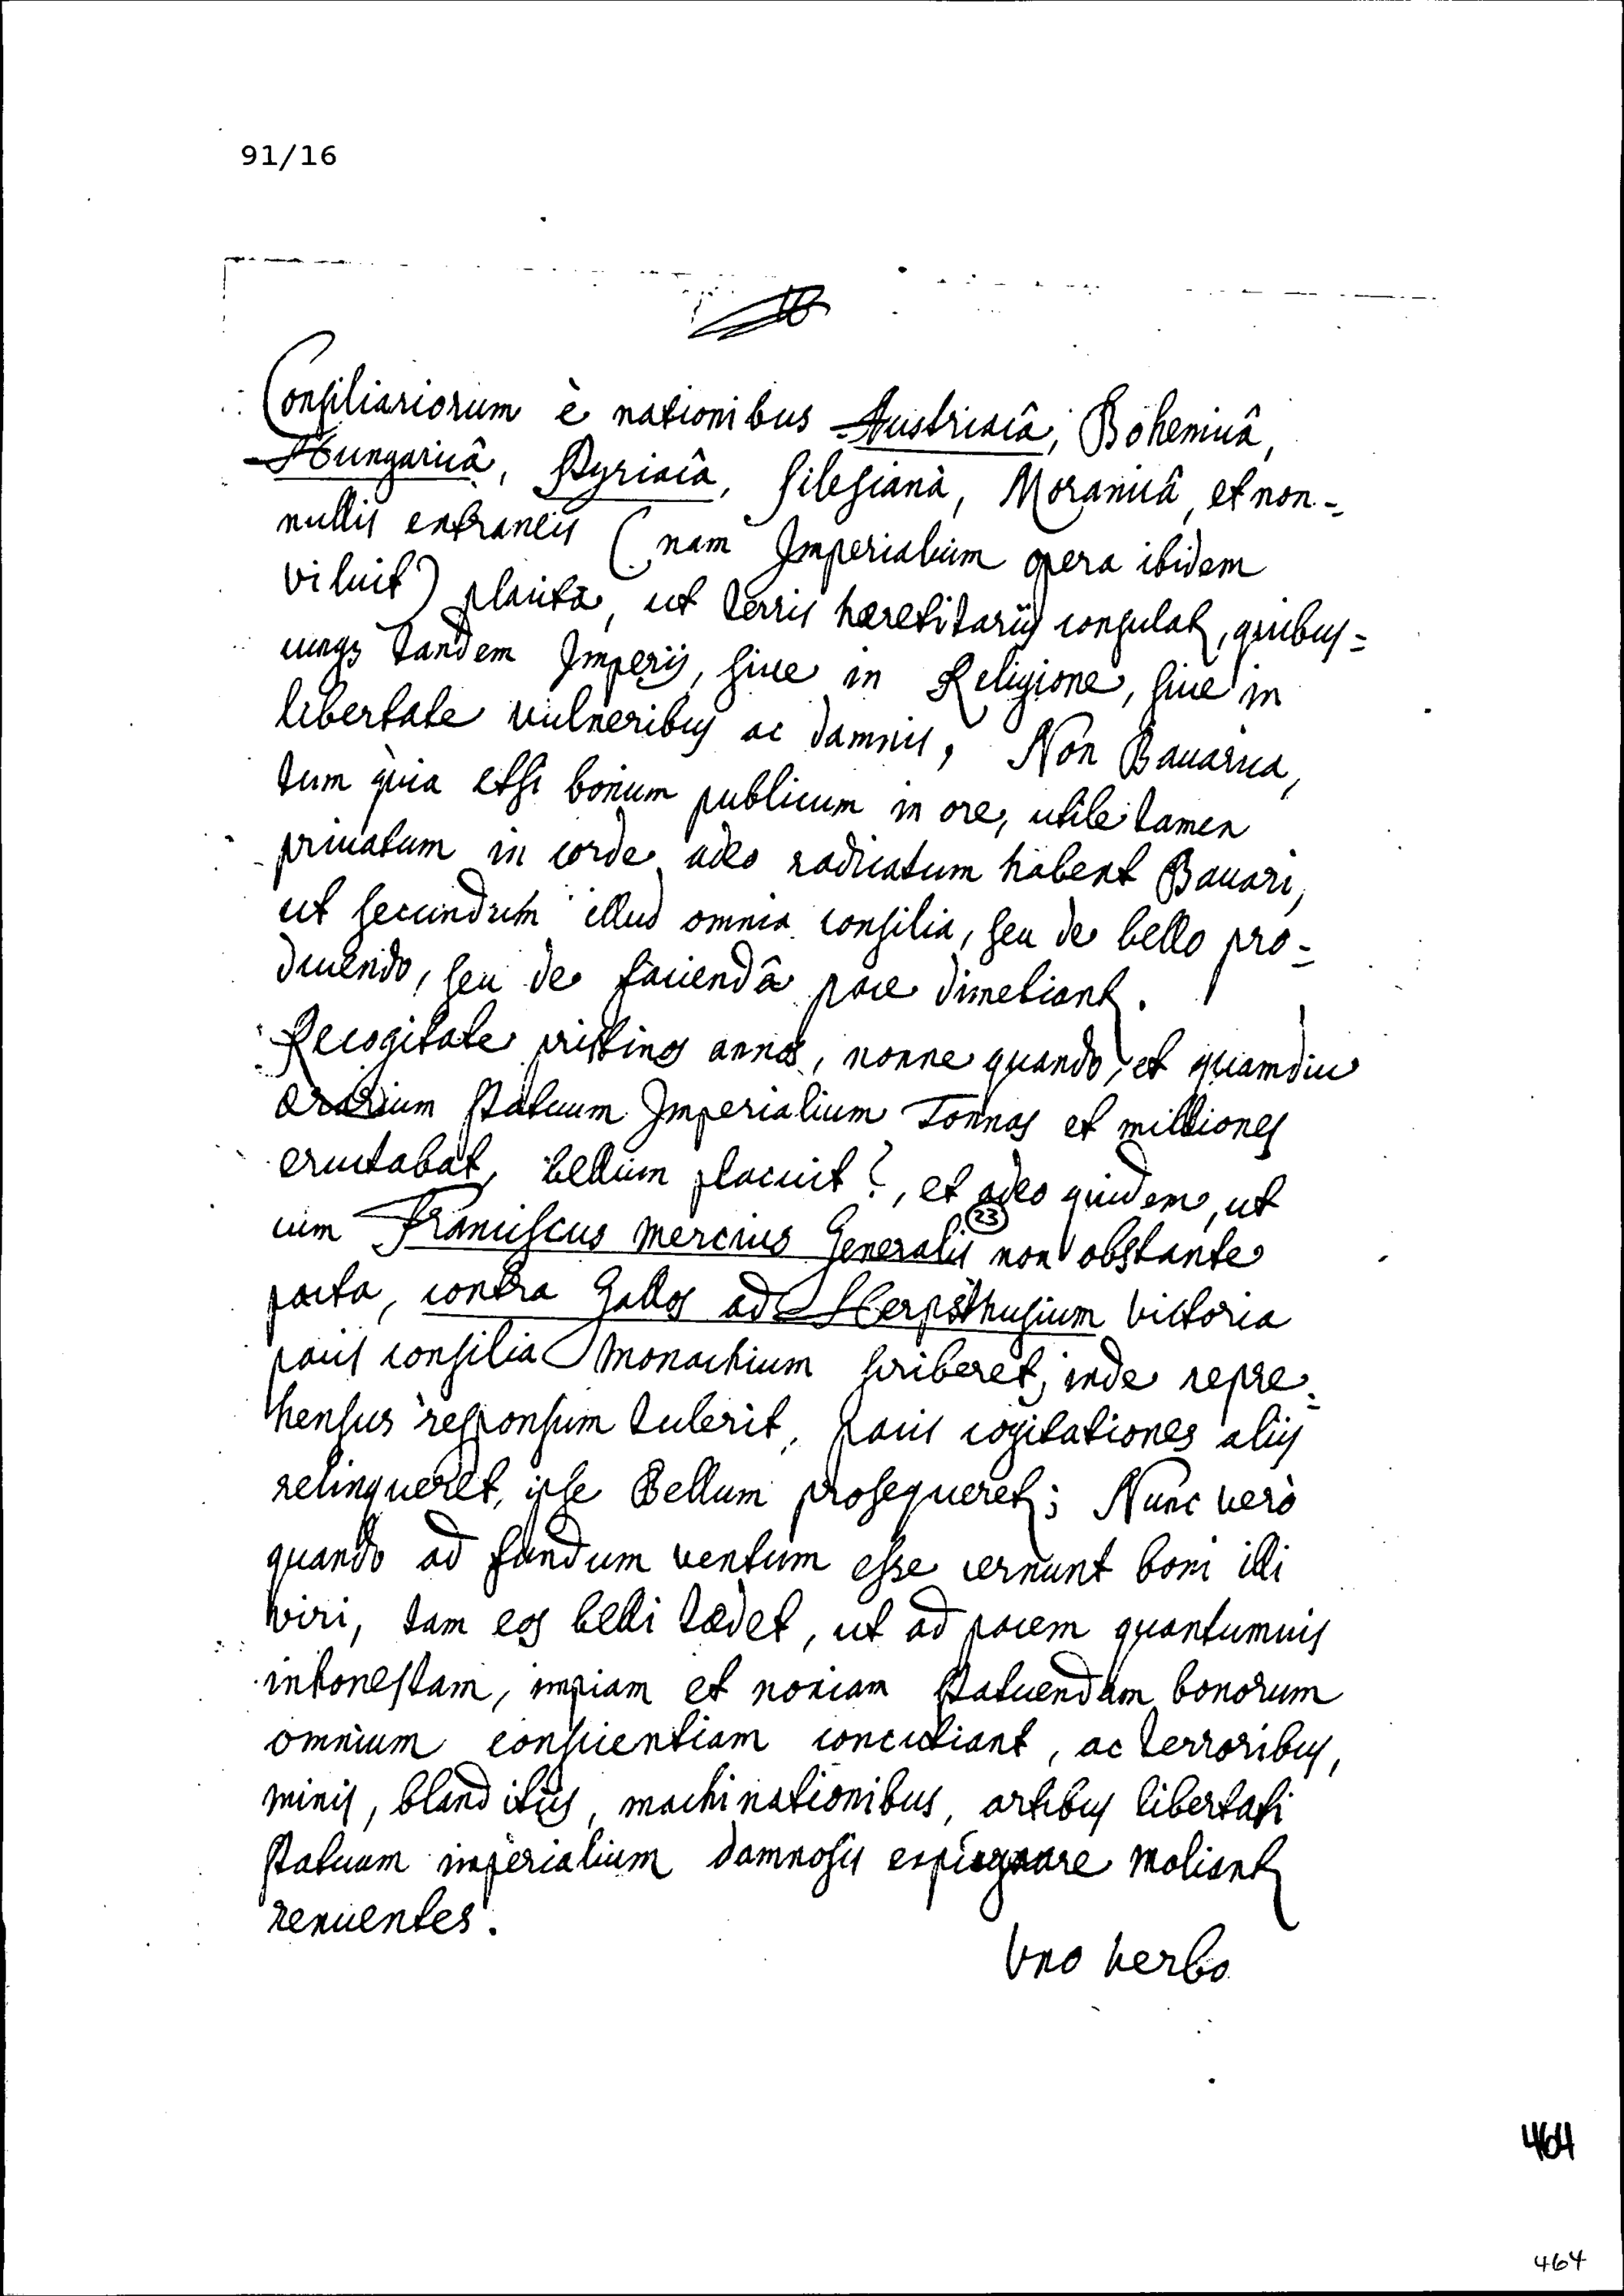 91/16
Consiliariorum è nationibus Austriacâ, Bohemicâ,
Hungaricâ, Styriacâ, Silesianâ, Moranicâ, et non-
nullis extraneis (nam Imperialium opera ibidem
viluit) placita, ut terris hæretitarijs consulat, quibus=
cunqz tandem Imperij, siue in Religione, siue in
libertate vulneribus ac damnis, Non Bauarica,
tum quia etsi bonum publicum in ore, utile tamen
priuatum in corde adeo radicatum habent Bauari,
ut secundum illud omnia consilia, seu de bello pro-
ducendo, seu de faciendâ pace dimetiant.
Recogitate pristinos annos, nonne quando, et quamdiu
ærarium statuum Imperialium Tonnas et milliones
eructabat, bellum placuit?, et adeo quidem, ut
23
cum Franciscus Mercius Generalis non obstante
pacta, contra Gallos ad Herpsthusium victoria
pacis consilia Monachium scriberet, inde repre-
hensus responsum tulerit, pacis cogitationes alijs
relinqueret, ipse Bellum prosequeret; Nunc verò
quando ad fundum ventum esse cernunt boni illi
viri, tam eos belli tædet, ut ad pacem quantumuis
inhonestam, impiam et noxiam statuendam bonorum
omnium conscientiam concutiant, ac terroribus,
minis, blanditijs, machinationibus, artibus libertati
statuum imperialium damnosis expugnare moliant
renuentes.
Vno verbo
464
464